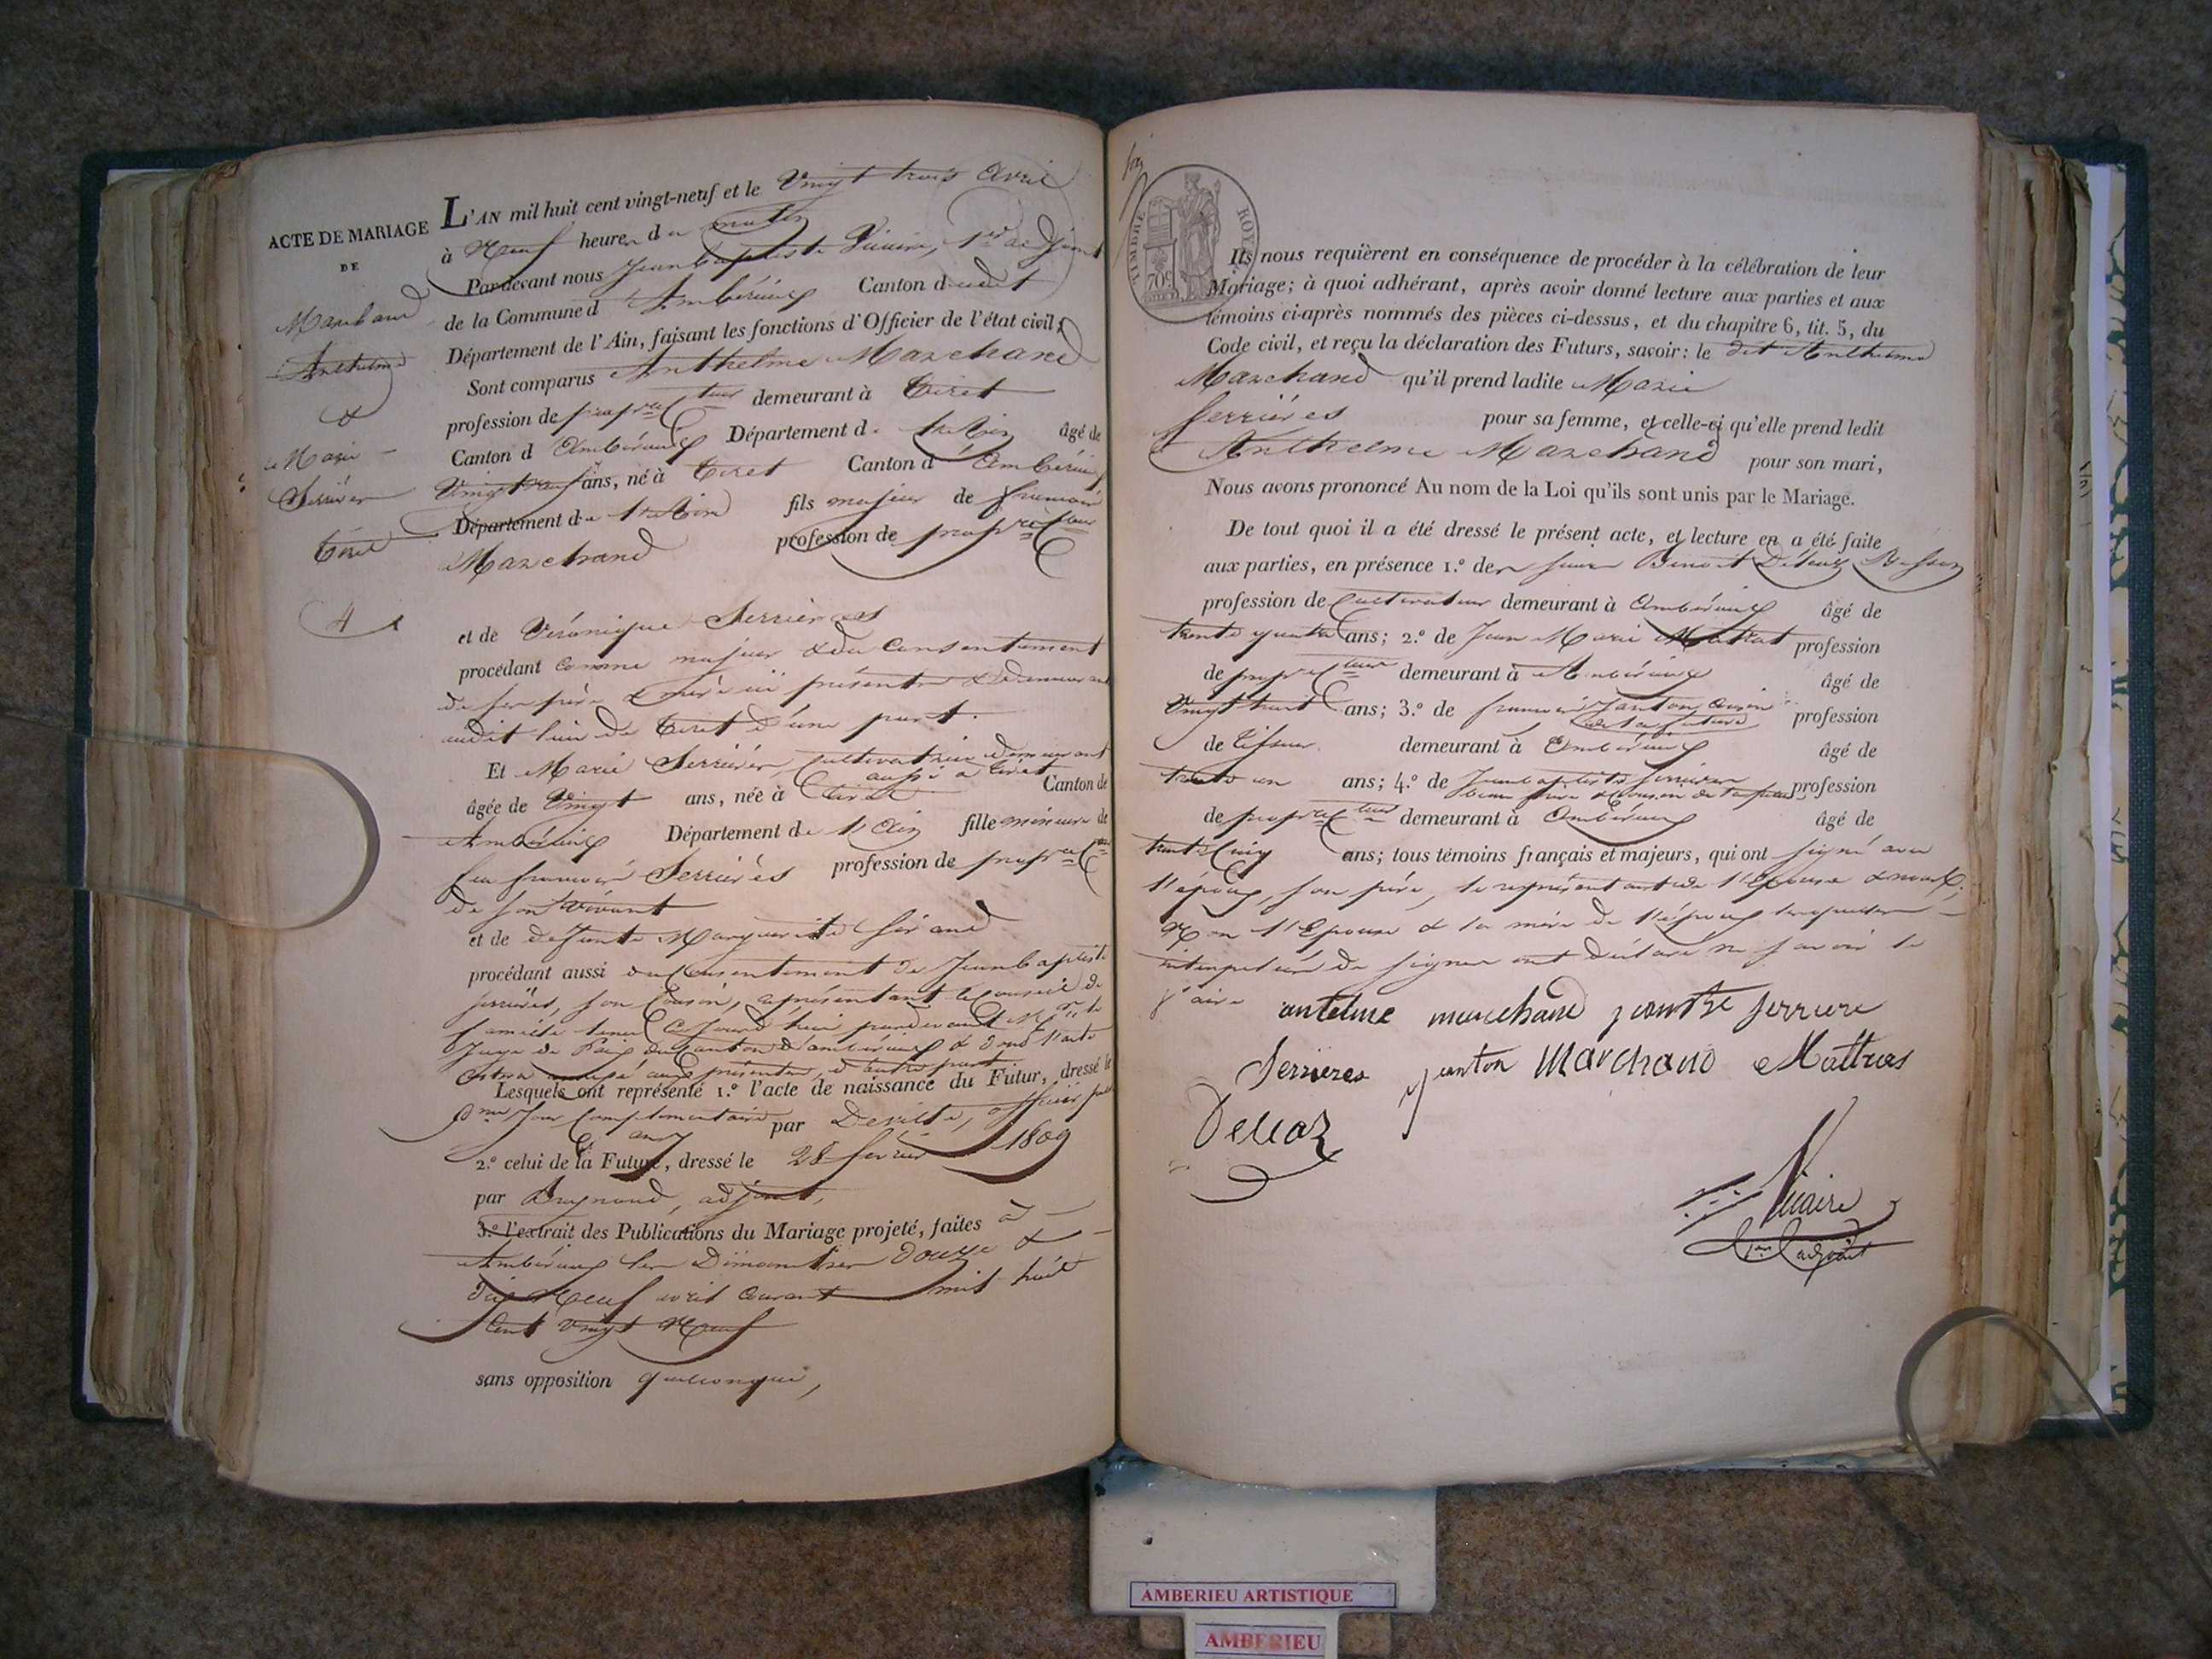 ACTE DE MARIAGE
DE
Marchand
Anthelme
&
Marie
Serrières
Tiret
4
L'AN mil huit cent vingt-neuf et le Vingt trois avril
à Neuf heures du matin
Pardevant nous Jean Baptiste Vicaire, 1er adjoint
de la Commune d'Ambérieux Canton dudit
Département de l'Ain, faisant les fonctions d'Officier de l'état civil,
Sont comparus Anthelme Marchand
profession de propre teur demeurant à Tiret
Canton d'Ambérieux Département de l'Ain âgé de
Vingt neuf ans, né à Tiret Canton d'Ambérieux
Département de l'Ain fils majeur de françois
Marchand profession de propriétaire
et de Véronique Serrières
procédant comme majeur & du consentement
de ses père & mère ici présents & demeurant
audit lieu de Tiret d'une part.
Et Marie Serrières, cultivatrice demeurant
aussi à Tiret
âgée de Vingt ans, née à Tiret Canton de
Ambérieux Département de l'Ain fille mineure de
feu françois Serrières profession de propre
de son vivant
et de défunte Marguerite
procédant aussi du Consentement de Jean Baptiste
Serrières, son Cousin, représentant le conseil de
famille tenu Ce jourd'hui pardevant Mr le
Juge de Paix du Canton d'ambérieux & dont l'acte
restera annexé aux présentes, d'autre part.
Lesquels ont représenté 1.º l'acte de naissance du Futur, dressé le
jour Complémentaire an 7 par Deville, officier
2.º celui de la Future, dressé le 28 février 1809
par adjoint,
3.º l'extrait des Publications du Mariage projeté, faites à
Ambérieux les Dimanches Douze &
dix Neuf avril Courant mil huit
Cent vingt Neuf
sans opposition quelconque,
TIMBRE ROYAL
70c
Ils nous requièrent en conséquence de procéder à la célébration de leur
Mariage; à quoi adhérant, après avoir donné lecture aux parties et aux
témoins ci-après nommés des pièces ci-dessus, et du chapitre 6, tit. 5, du
Code civil, et reçu la déclaration des Futurs, savoir: le dit Anthelme
Marchand qu'il prend ladite Marie
Serrières pour sa femme, et celle-ci qu'elle prend ledit
Anthelme Marchand pour son mari,
Nous avons prononcé Au nom de la Loi qu'ils sont unis par le Mariage.
De tout quoi il a été dressé le présent acte, et lecture en a été faite
aux parties, en présence 1.º des sieurs Benoit
profession de Cultivateur demeurant à Ambérieux âgé de
trente quatre ans; 2.º de Jean Marie profession
de propre teur demeurant à Ambérieux âgé de
Vingt huit ans; 3.º de françois Janton cousin
de la future profession
de tisseur demeurant à Ambérieux âgé de
trente un ans; 4.º de Jean baptiste Serrières
beau frère & cousin de la future, profession
de propre teur demeurant à Ambérieux âgé de
trente Cinq ans; tous témoins français et majeurs, qui ont signé avec
l'époux, son père, le représentant de l'Epouse & nous;
Non l'Epouse & la mère de l'époux lesquelles
interpellées de signer ont déclaré ne savoir le
faire
antelme marchand serriere
Serrieres janton Marchand Mattras
Dellaz
Vicaire
1er adjoint
AMBERIEU ARTISTIQUE
AMBERIEU